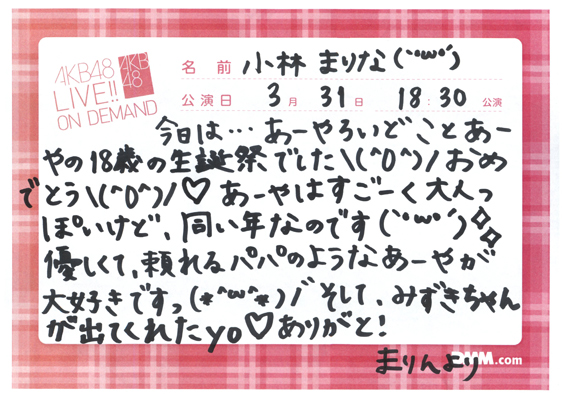 AKB48
LIVE!!
ON DEMAND
AKB
48
名 前 小林 まりな(´･ω･`)
公演日 3月 31日 18:30 公演
今日は…あーやろいどことあー
やの18歳の生誕祭でした\(^O^)/おめ
でとう\(^O^)/♡あーやはすごーく大人っ
ぽいけど、同い年なのです(`･ω･´)✧✧
優しくて、頼れるパパのようなあーやが
大好きですっ(*^ω^*)ﾉ゙そして、みずきちゃん
が出てくれたyo♡ありがと!
まりんより
.com